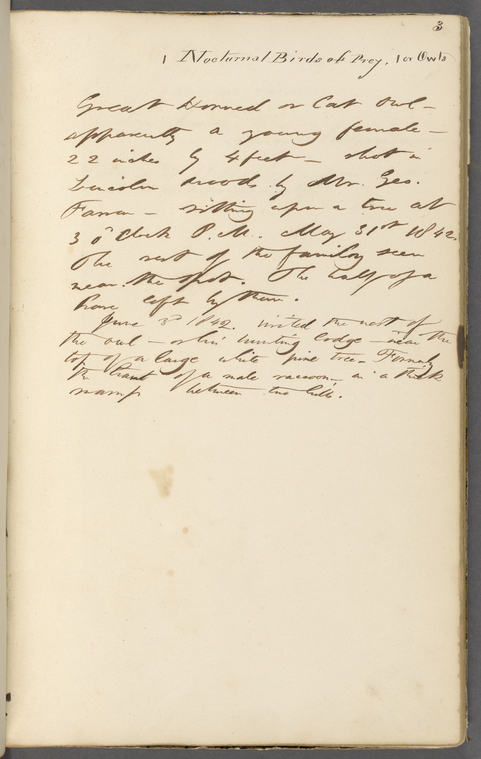 3
1 Nocturnal Birds of Prey. 1 or Owls
Great Horned or Cat Owl —
apparently a young female —
22 inches by 4 feet — shot in
Lincoln woods by Mr. Geo.
Farrar — sitting upon a tree at
3 o'clock P.M. May 31st 1842.
The rest of the family seen
near the spot. The half of a
hare left by them.
June 3d 1842. visited the nest of
the owl — or his hunting lodge — near the
top of a large white pine tree — Formerly
the haunt of a male raccoon, in a thick
swamp between two hills.